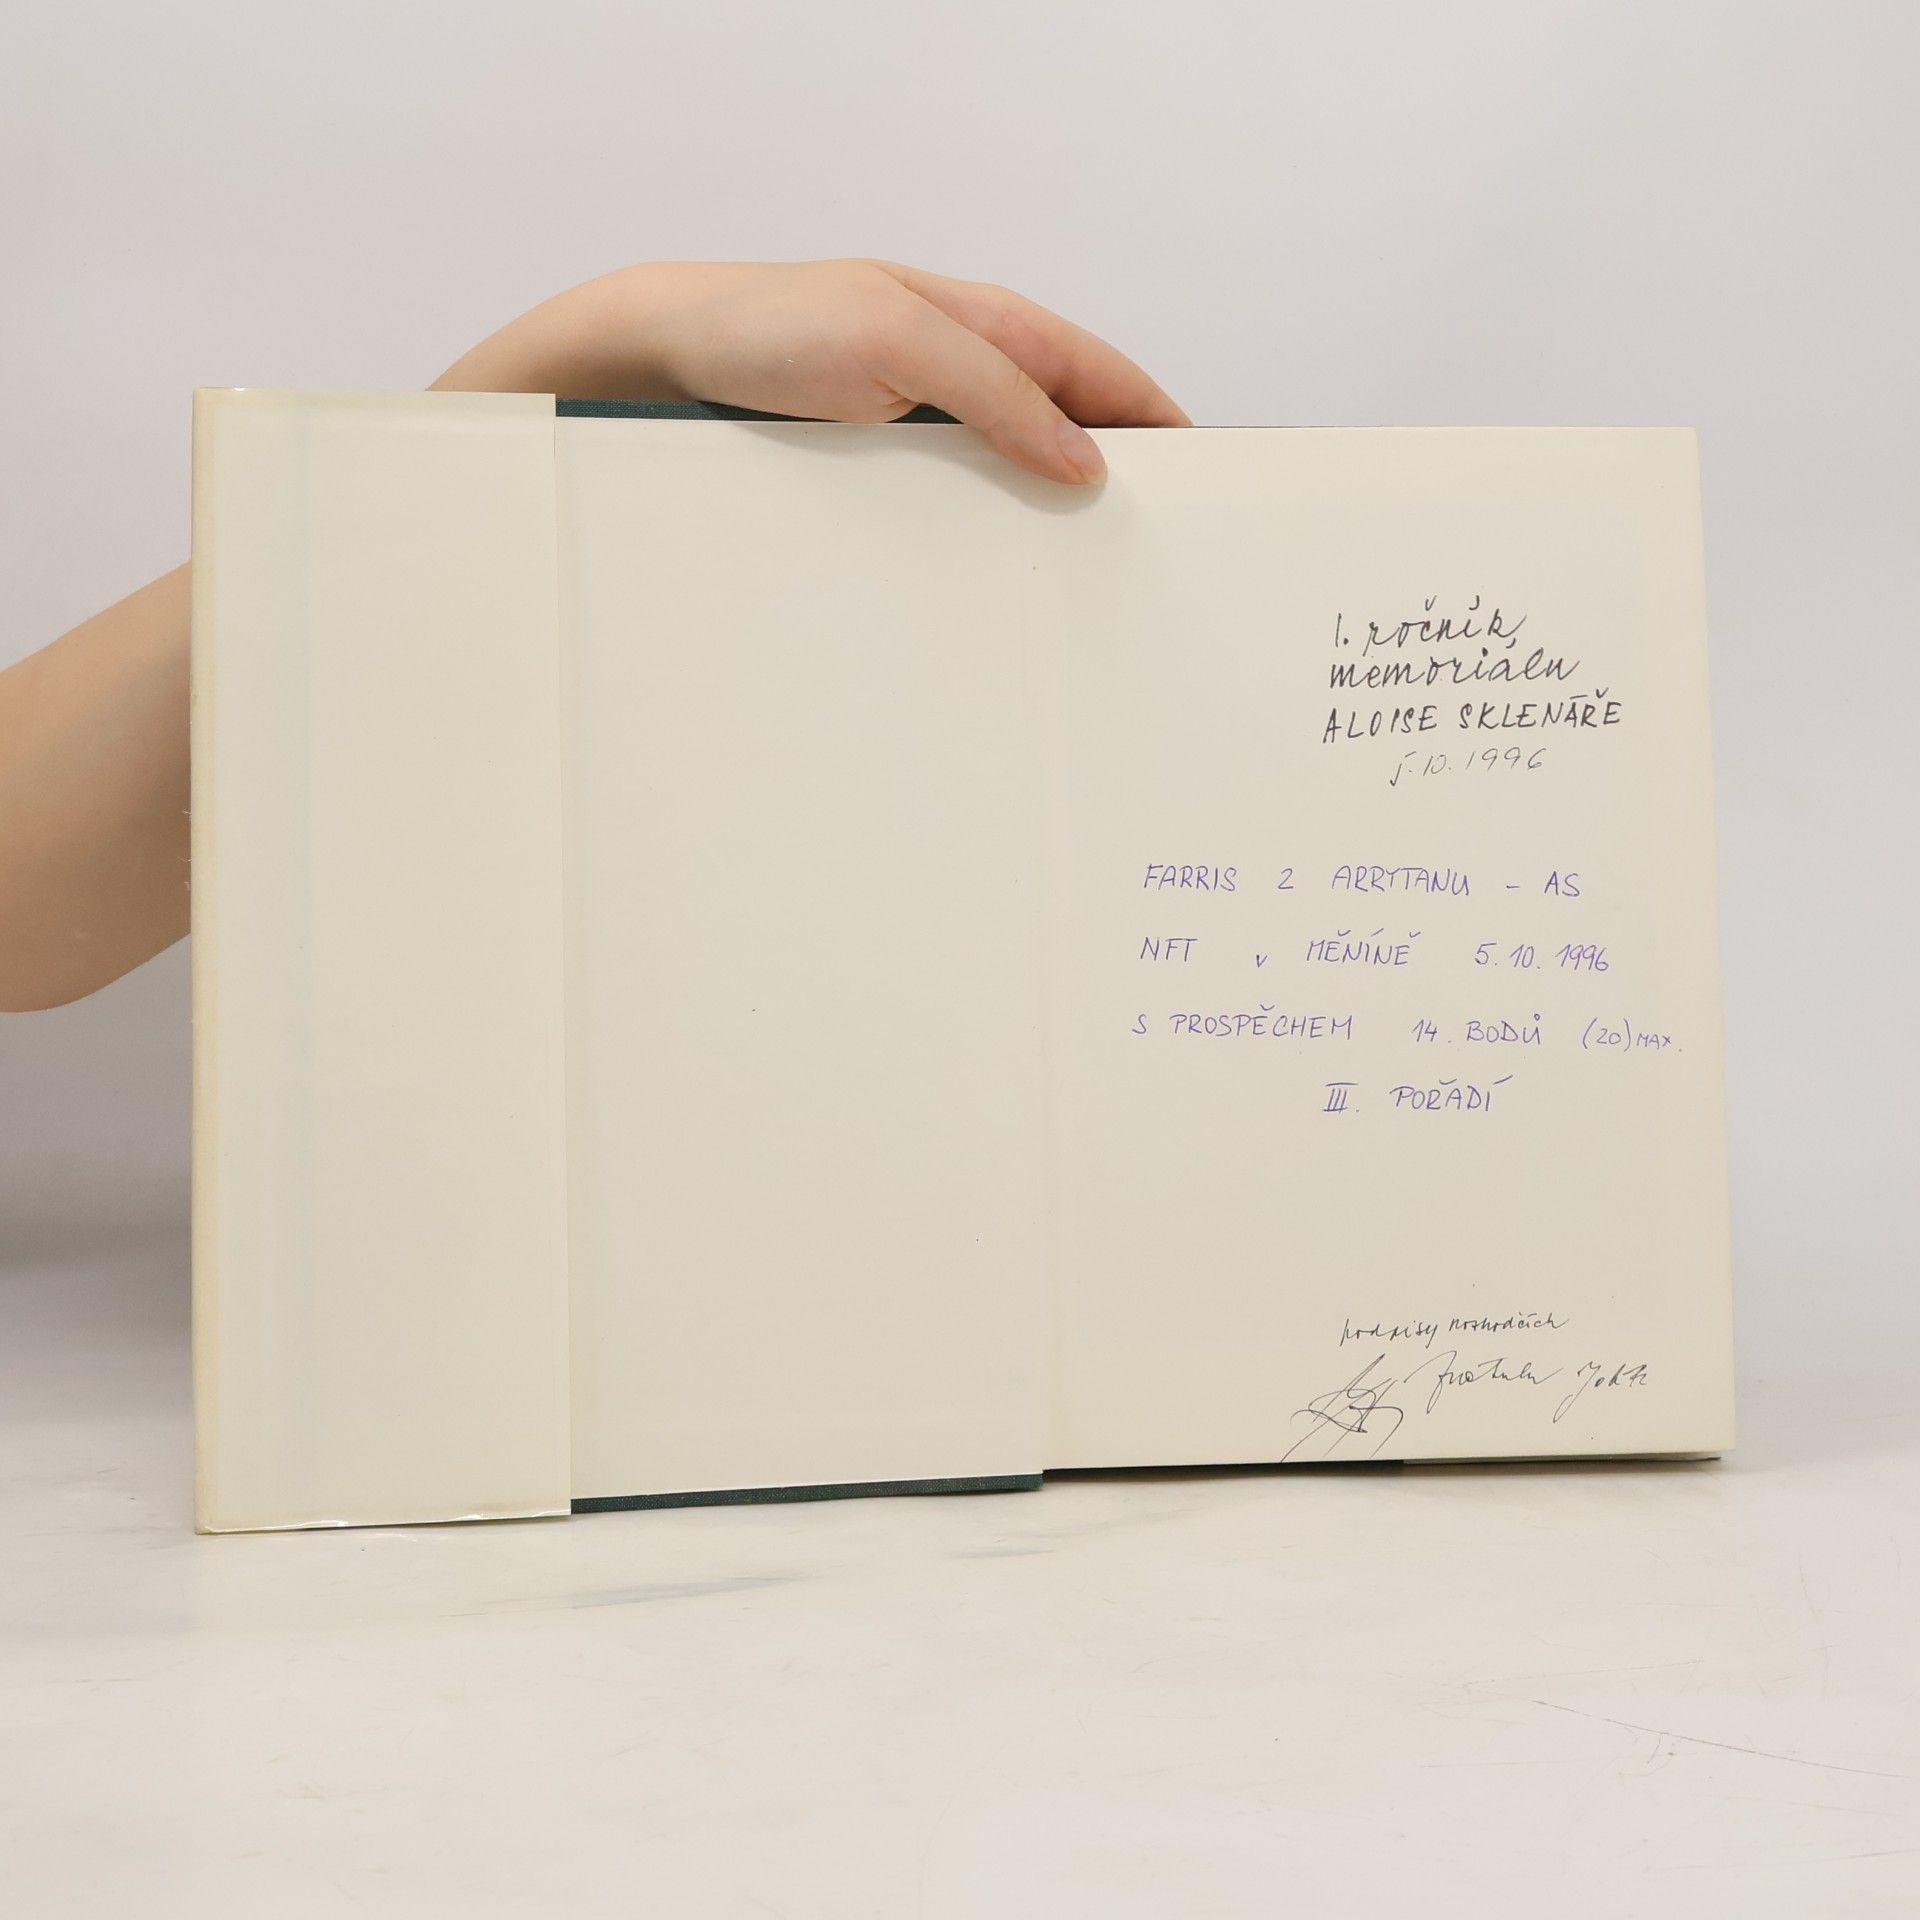 1. ročník
memoriálu
ALOISE SKLENÁŘE
5.10.1996
FARRIS Z ARRYTANU - AS
NFT v MĚNÍNĚ 5.10.1996
S PROSPĚCHEM 14. BODŮ (20) MAX.
III. POŘADÍ
podpisy rozhodčích